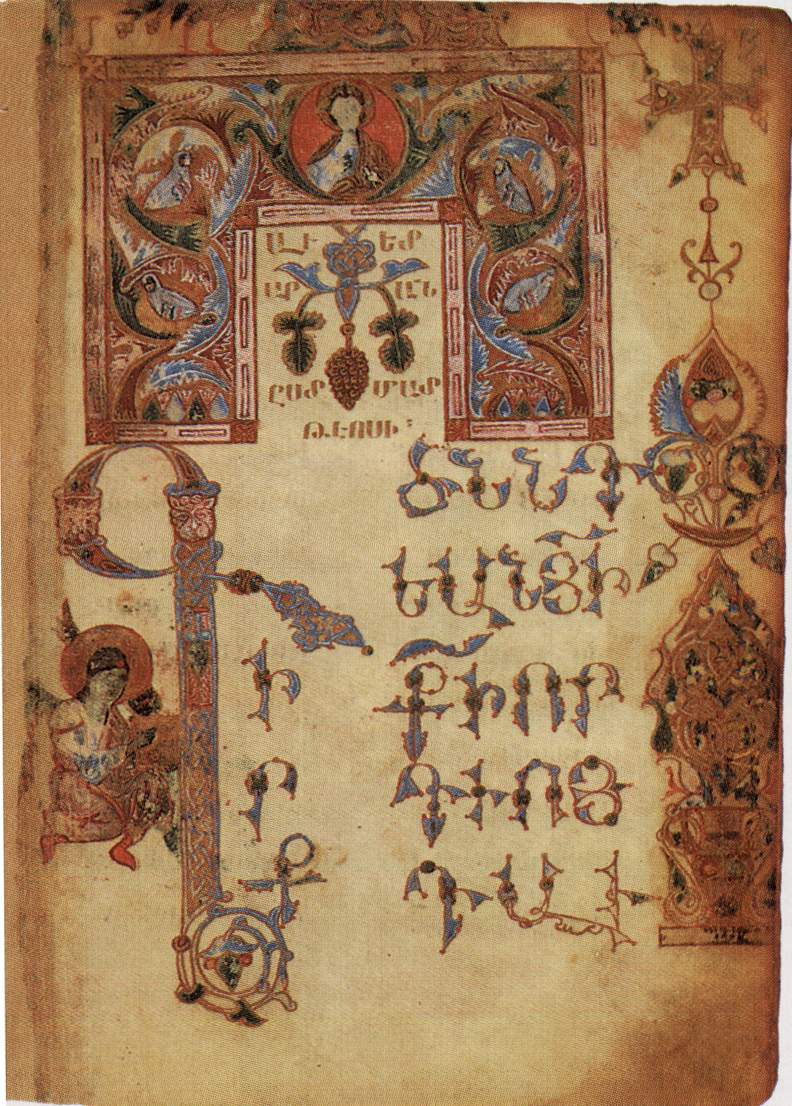 ԱՒ ԵՏ
ԱՐ ԱՆ
ԸՍՏ ՄԱՏ
ԹԷՈՍԻ
ԳԻՐՔ
ԾՆՆԴ
ԵԱՆ ՅԻ
ՔԻ ՈՐ
ԴՒՈՅ
ԴԱՒ